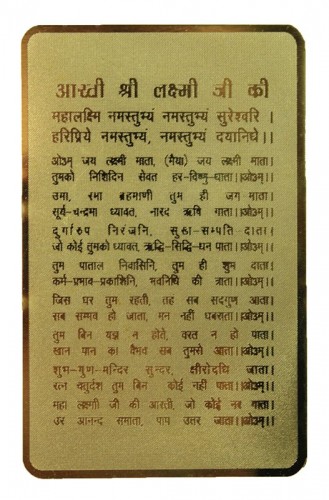 आरती श्री लक्ष्मी जी की
महालक्ष्मि नमस्तुभ्यं नमस्तुभ्यं सुरेश्वरि ।
हरिप्रिये नमस्तुभ्यं, नमस्तुभ्यं दयानिधे।।
ओ३म् जय लक्ष्मी माता, (मैया) जय लक्ष्मी माता।
तुमको निशिदिन सेवत हर-विष्णु-धाता।।ओ३म्।।
उमा, रमा ब्रहमाणी तुम ही जग माता।
सूर्य-चन्द्रमा ध्यावत, नारद ऋषि गाता।।ओ३म्।।
दुर्गारुप निरंजनि, सुख-सम्पति-दाता।
जो कोई तुमको ध्यावत, ऋद्धि-सिद्धि-धन पाता।।ओ३म्।।
तुम पाताल निवासिनि, तुम ही शुभ दाता।
कर्म-प्रभाव-प्रकाशिनि, भवनिधि की त्राता।।ओ३म्।।
जिस घर तुम रहती, तह सब सदगुण आता।
सब सम्भव हो जाता, मन नहीं घबराता।।ओ३म्।।
तुम बिन यज्ञ न होते, वस्त न हो पाता।
खान पान का वैभव सब तुमसे आता।।ओ३म्।।
शुभ-गुण-मन्दिर सुन्दर, क्षीरोदधि जाता।
रत्न चतुर्दश तुम बिन कोई नहीं पाता।।ओ३म्।।
महा लक्ष्मी जी की आरती, जो कोई नर गाता।
उर आनन्द समाता, पाप उतर जाता।।ओ३म्।।